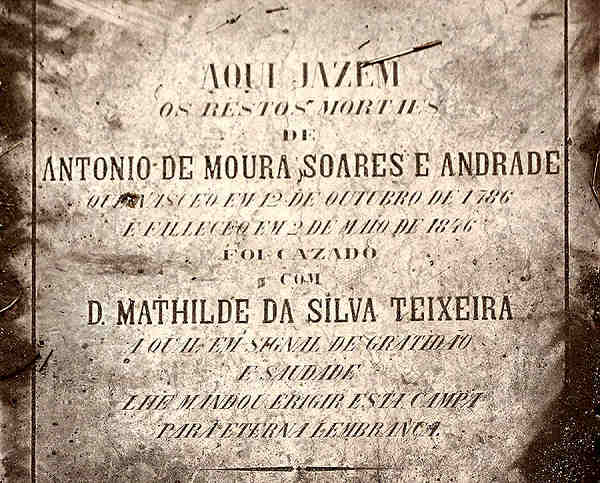 AQUI JAZEM
OS RESTOS MORTAES
DE
ANTONIO DE MOURA SOARES E ANDRADE
QUE NASCEO EM 12 DE OUTUBRO DE 1786
E FALLECEO EM 2 DE MAIO DE 1846
FOI CAZADO
COM
D. MATHILDE DA SILVA TEIXEIRA
A QUAL EM SIGNAL DE GRATIDÃO
E SAUDADE
LHE MANDOU ERIGIR ESTA CAMPA
PARA ETERNA LEMBRANÇA.